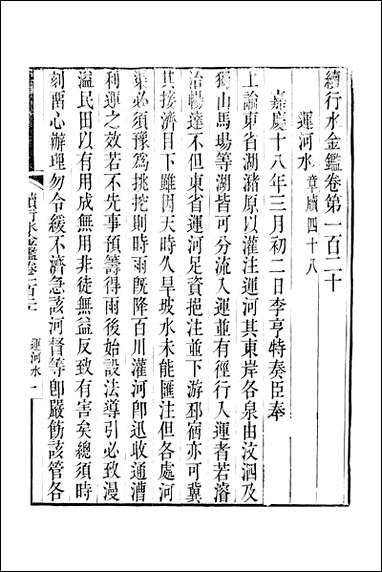 續行水金鑑卷第一百二十
運河水 章牘四十八
嘉慶十八年三月初二日李亨特奏臣奉
上諭東省湖瀦原以灌注運河其東岸各泉由汶泗及
獨山馬場等湖皆可分流入運並有徑行入運者若濬
治暢達不但東省運河足資挹注並下游邳宿亦可冀
其接濟目下雖因天時久旱坡水未能匯注但各處河
渠必須豫爲挑挖則時雨旣降百川灌河卽迅收通漕
利運之效若不先事預籌得雨後始設法導引必致漫
溢民田以有用成無用非徒無益反致有害矣總須時
刻留心辦理勿令緩不濟急該河督等卽嚴飭該管各
續行水金鑑卷一百二十 運河水 一